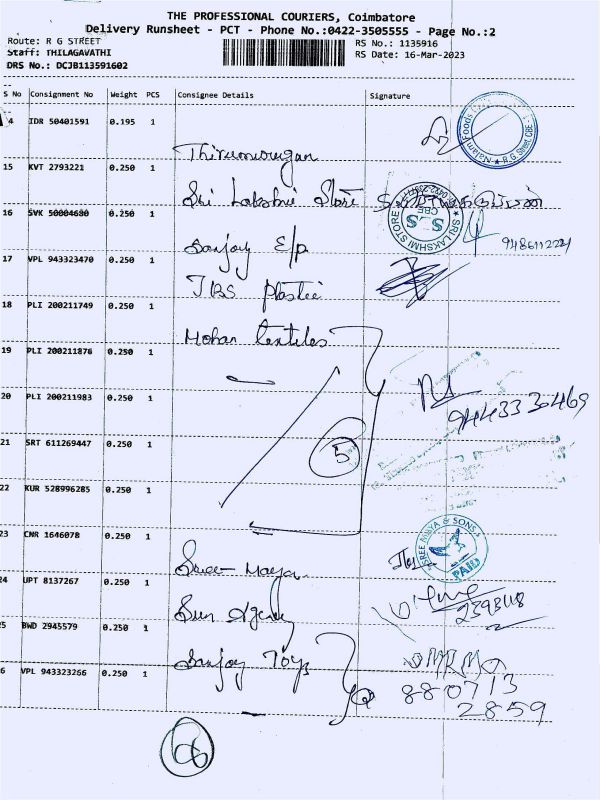 THE PROFESSIONAL COURIERS, Coimbatore
Delivery Runsheet - PCT - Phone No.:0422-3505555 - Page No.:2
Route: R G STREET
RS No.: 1135916
Staff: THILAGAVATHI
RS Date: 16-Mar-2023
DRS No.: DCJB113591602
S No Consignment No Weight PCS Consignee Details Signature
4 IDR 50401591 0.195 1
Thirumurugan
Nalam Foods ★ R G Street CBE ★
15 KVT 2793221 0.250 1
Sri Lakshmi Store
★ SRI LAKSHMI STORE ★ SLS CBE
16 SVK 50004680 0.250 1
Sanjay E/p
9486112221
17 VPL 943323470 0.250 1
JBS plastic
18 PLI 200211749 0.250 1
Mohan textiles
19 PLI 200211876 0.250 1
20 PLI 200211983 0.250 1
9443330469
21 SRT 611269447 0.250 1
5
22 KUR 528996285 0.250 1
23 CNR 1646078 0.250 1
Sree Maya
SREE MAYA & SONS PAID
24 UPT 8137267 0.250 1
Sun Agency
25 BWD 2945579 0.250 1
Sanjay Toys
6 VPL 943323266 0.250 1
880713
2859